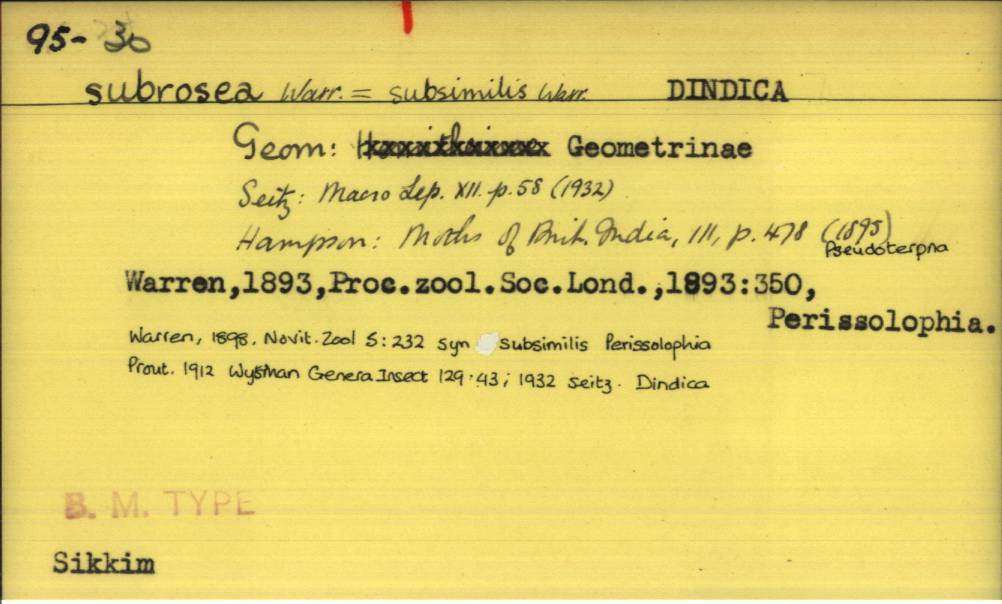 95- 30
subrosea Warr. = subsimilis Warr. DINDICA
Geom: Geometrinae
Seitz: Macro Lep. XII. p. 58 (1932)
Hampson: Moths of Brit. India, III, p. 478 (1895)
Pseudoterpna
Warren,1893,Proc.zool.Soc.Lond.,1893:350,
Perissolophia.
Warren, 1898. Novit. Zool 5:232 syn subsimilis Perissolophia
Prout. 1912 Wytsman Genera Insect 129:43; 1932 Seitz. Dindica
B. M. TYPE
Sikkim